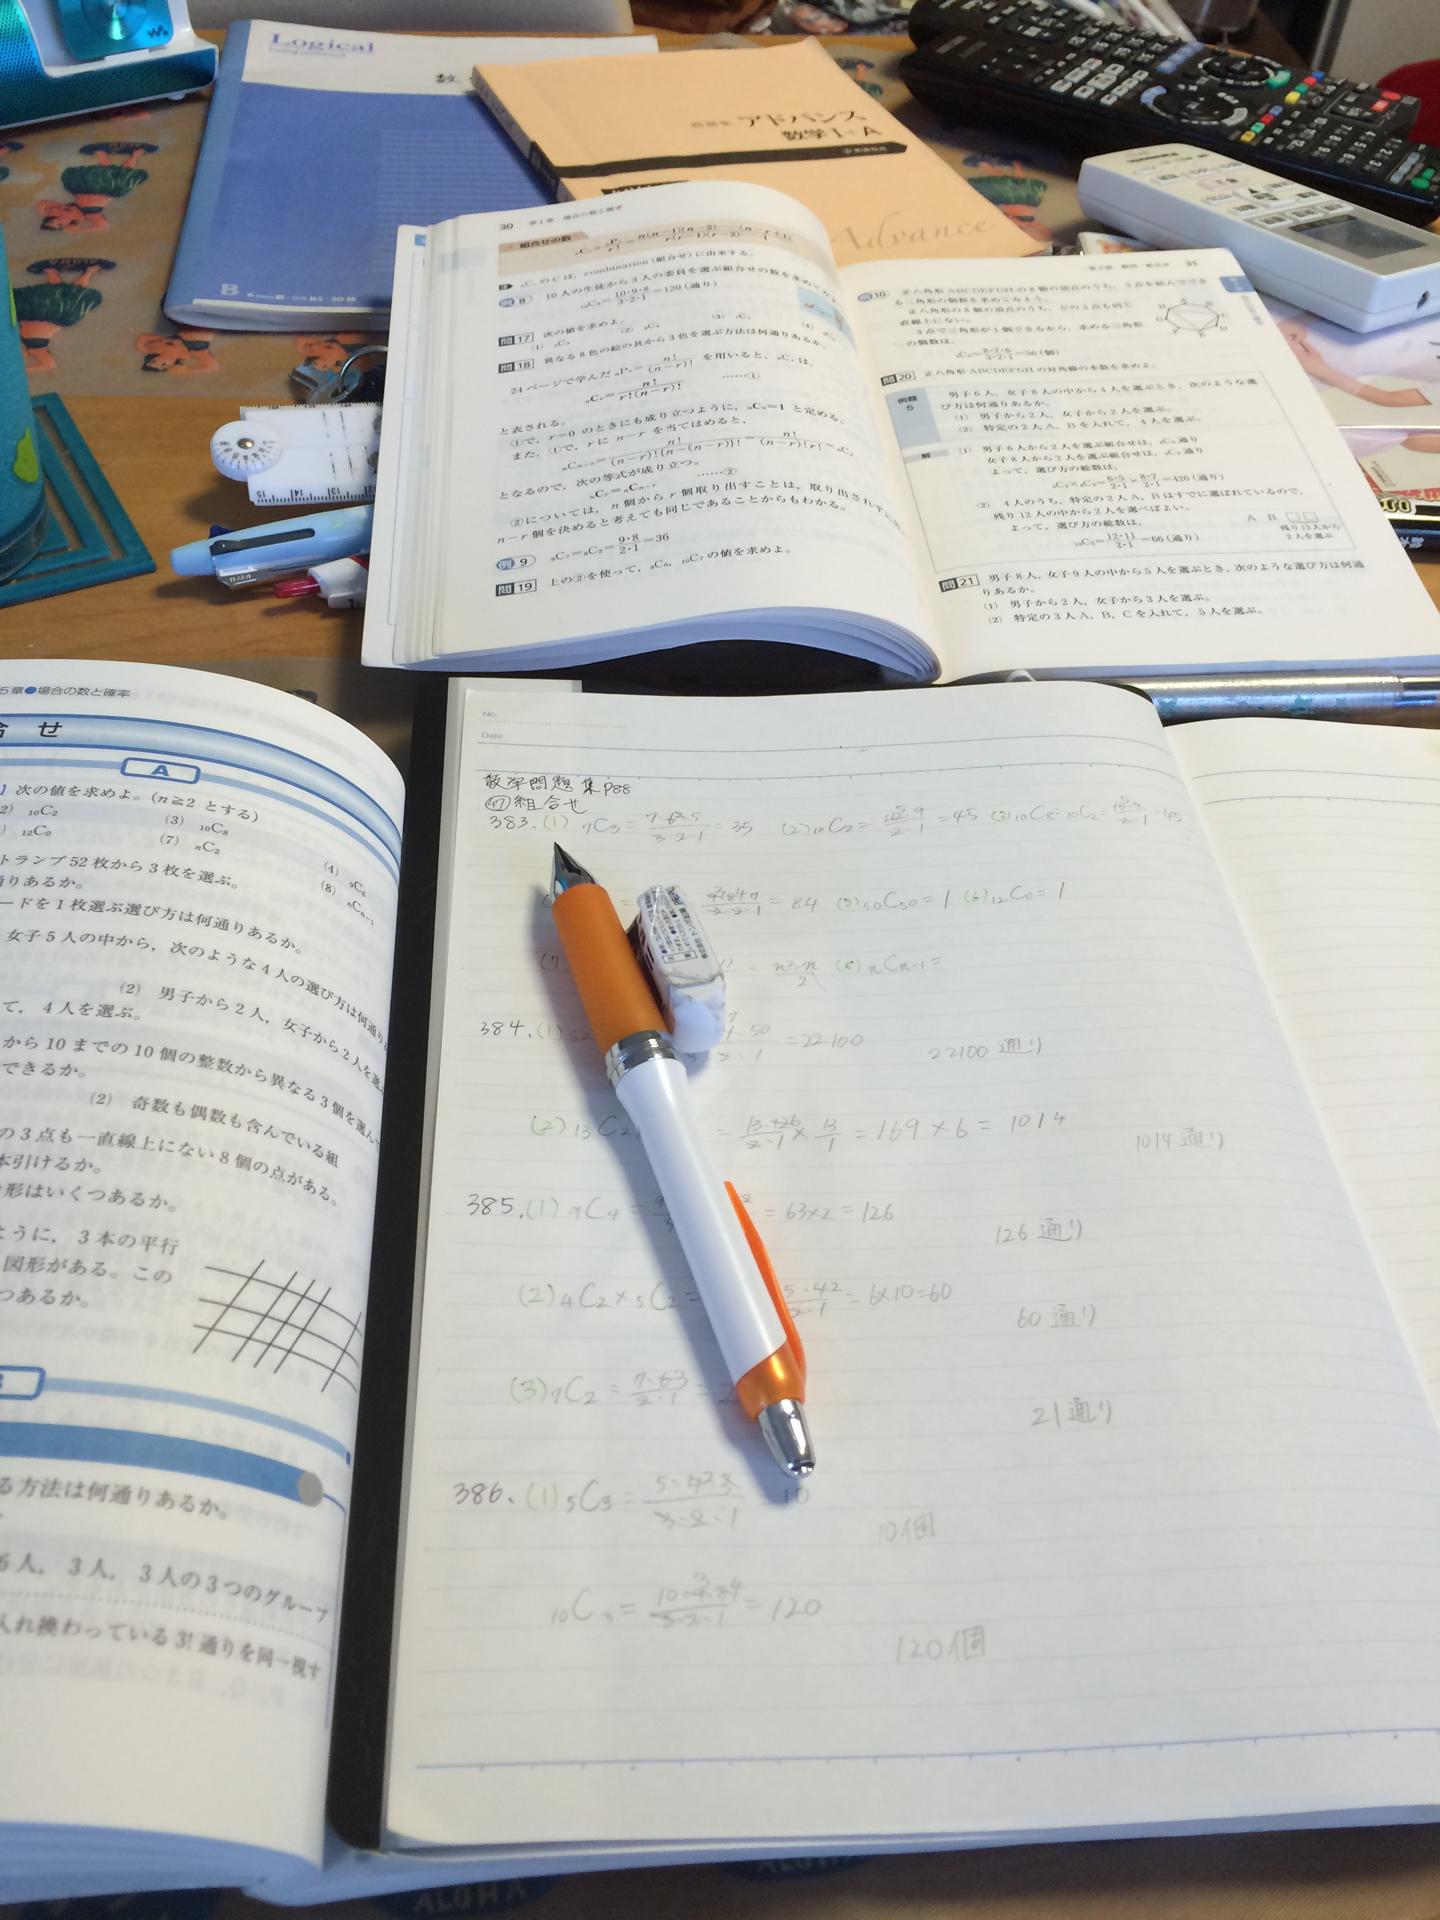 Logical
アドバンス
数学I+A
Advance
B
30
組合せの数
Cは, combination (組合せ) に由来する。
例8 10人の生徒から3人の委員を選ぶ組合せの数を求めてみ
₁₀C₃=10・9・8/3・2・1=120(通り)
問17 次の値を求めよ。
問18 異なる8色の絵の具から3色を選ぶ方法は何通りあるか。
24ページで学んだ ₙPᵣ=n!/(n-r)! を用いると, ₙCᵣ は,
ₙCᵣ=n!/r!(n-r)! ……①
と表される。
①で, r=0 のときにも成り立つように, ₙC₀=1 と定める。
また, ①で, r に n-r を当てはめると,
ₙCₙ₋ᵣ=n!/(n-r)!{n-(n-r)}!=n!/(n-r)!r!=ₙCᵣ
となるので, 次の等式が成り立つ。
ₙCᵣ=ₙCₙ₋ᵣ ……②
②については, n個から r個取り出すことは, 取り出されずに
n-r個を決めると考えても同じであることからもわかる。
例9 ₉C₇=₉C₂=9・8/2・1=36
問19 上の②を使って, ₈C₆, ₁₀C₇ の値を求めよ。
31
例10 正八角形ABCDEFGHの8個の頂点のうち, 3点を結んででき
る三角形の個数を求めてみよう。
正八角形の8個の頂点のうち, どの3点も同じ
直線上にない。
3点で三角形が1個できるから, 求める三角形
の個数は,
₈C₃=8・7・6/3・2・1=56(個)
問20 正八角形ABCDEFGHの対角線の本数を求めよ。
例題5
男子6人, 女子8人の中から4人を選ぶとき, 次のような選
び方は何通りあるか。
(1) 男子から2人, 女子から2人を選ぶ。
(2) 特定の2人A, Bを入れて, 4人を選ぶ。
解 (1) 男子6人から2人を選ぶ組合せは, ₆C₂通り
女子8人から2人を選ぶ組合せは, ₈C₂通り
よって, 選び方の総数は,
₆C₂×₈C₂=6・5/2・1×8・7/2・1=420(通り)
(2) 4人のうち, 特定の2人A, Bはすでに選ばれているので,
残り12人の中から2人を選べばよい。
よって, 選び方の総数は,
₁₂C₂=12・11/2・1=66(通り)
A B
残り12人から
2人を選ぶ
問21 男子8人, 女子9人の中から5人を選ぶとき, 次のような選び方は何通
りあるか。
(1) 男子から2人, 女子から3人を選ぶ。
(2) 特定の3人A, B, Cを入れて, 5人を選ぶ。
5章●場合の数と確率
合せ
A
次の値を求めよ。(n≧2 とする)
2) ₁₀C₂ (3) ₁₀C₈ (4) ₉C₆
₁₂C₀ (7) ₙC₂ (8) ₙCₙ₋₁
トランプ52枚から3枚を選ぶ。
通りあるか。
ードを1枚選ぶ選び方は何通りあるか。
女子5人の中から, 次のような4人の選び方は何通り
(2) 男子から2人, 女子から2人を選
て, 4人を選ぶ。
から10までの10個の整数から異なる3個を選んで
できるか。
(2) 奇数も偶数も含んでいる組
の3点も一直線上にない8個の点がある。
本引けるか。
形はいくつあるか。
ように, 3本の平行
図形がある。この
つあるか。
る方法は何通りあるか。
6人, 3人, 3人の3つのグループ
入れ換わっている3!通りを同一視す
No.
Date
数学問題集P88
㊼組合せ
383.(1) ₇C₃=7・6・5/3・2・1=35 (2)₁₀C₂=10・9/2・1=45 (3)₁₀C₈=₁₀C₂=10・9/2・1=45
=84 (5)₅₀C₅₀=1 (6)₁₂C₀=1
(7 =n²-n/2 (8)ₙCₙ₋₁=
384.(1)52 =22100 22100通り
(2)₁₃C₂ ×13/1=169×6=1014 1014通り
385.(1)₉C₄= =63×2=126 126通り
(2)₄C₂×₅C₂= =6×10=60 60通り
(3)₇C₂=7・6 3/2・1=2 21通り
386.(1)₅C₃=5・4 2・3/3・2・1=10 10個
₁₀C₃=10・9 3・8 4/3・2・1=120 120個
ALOHA